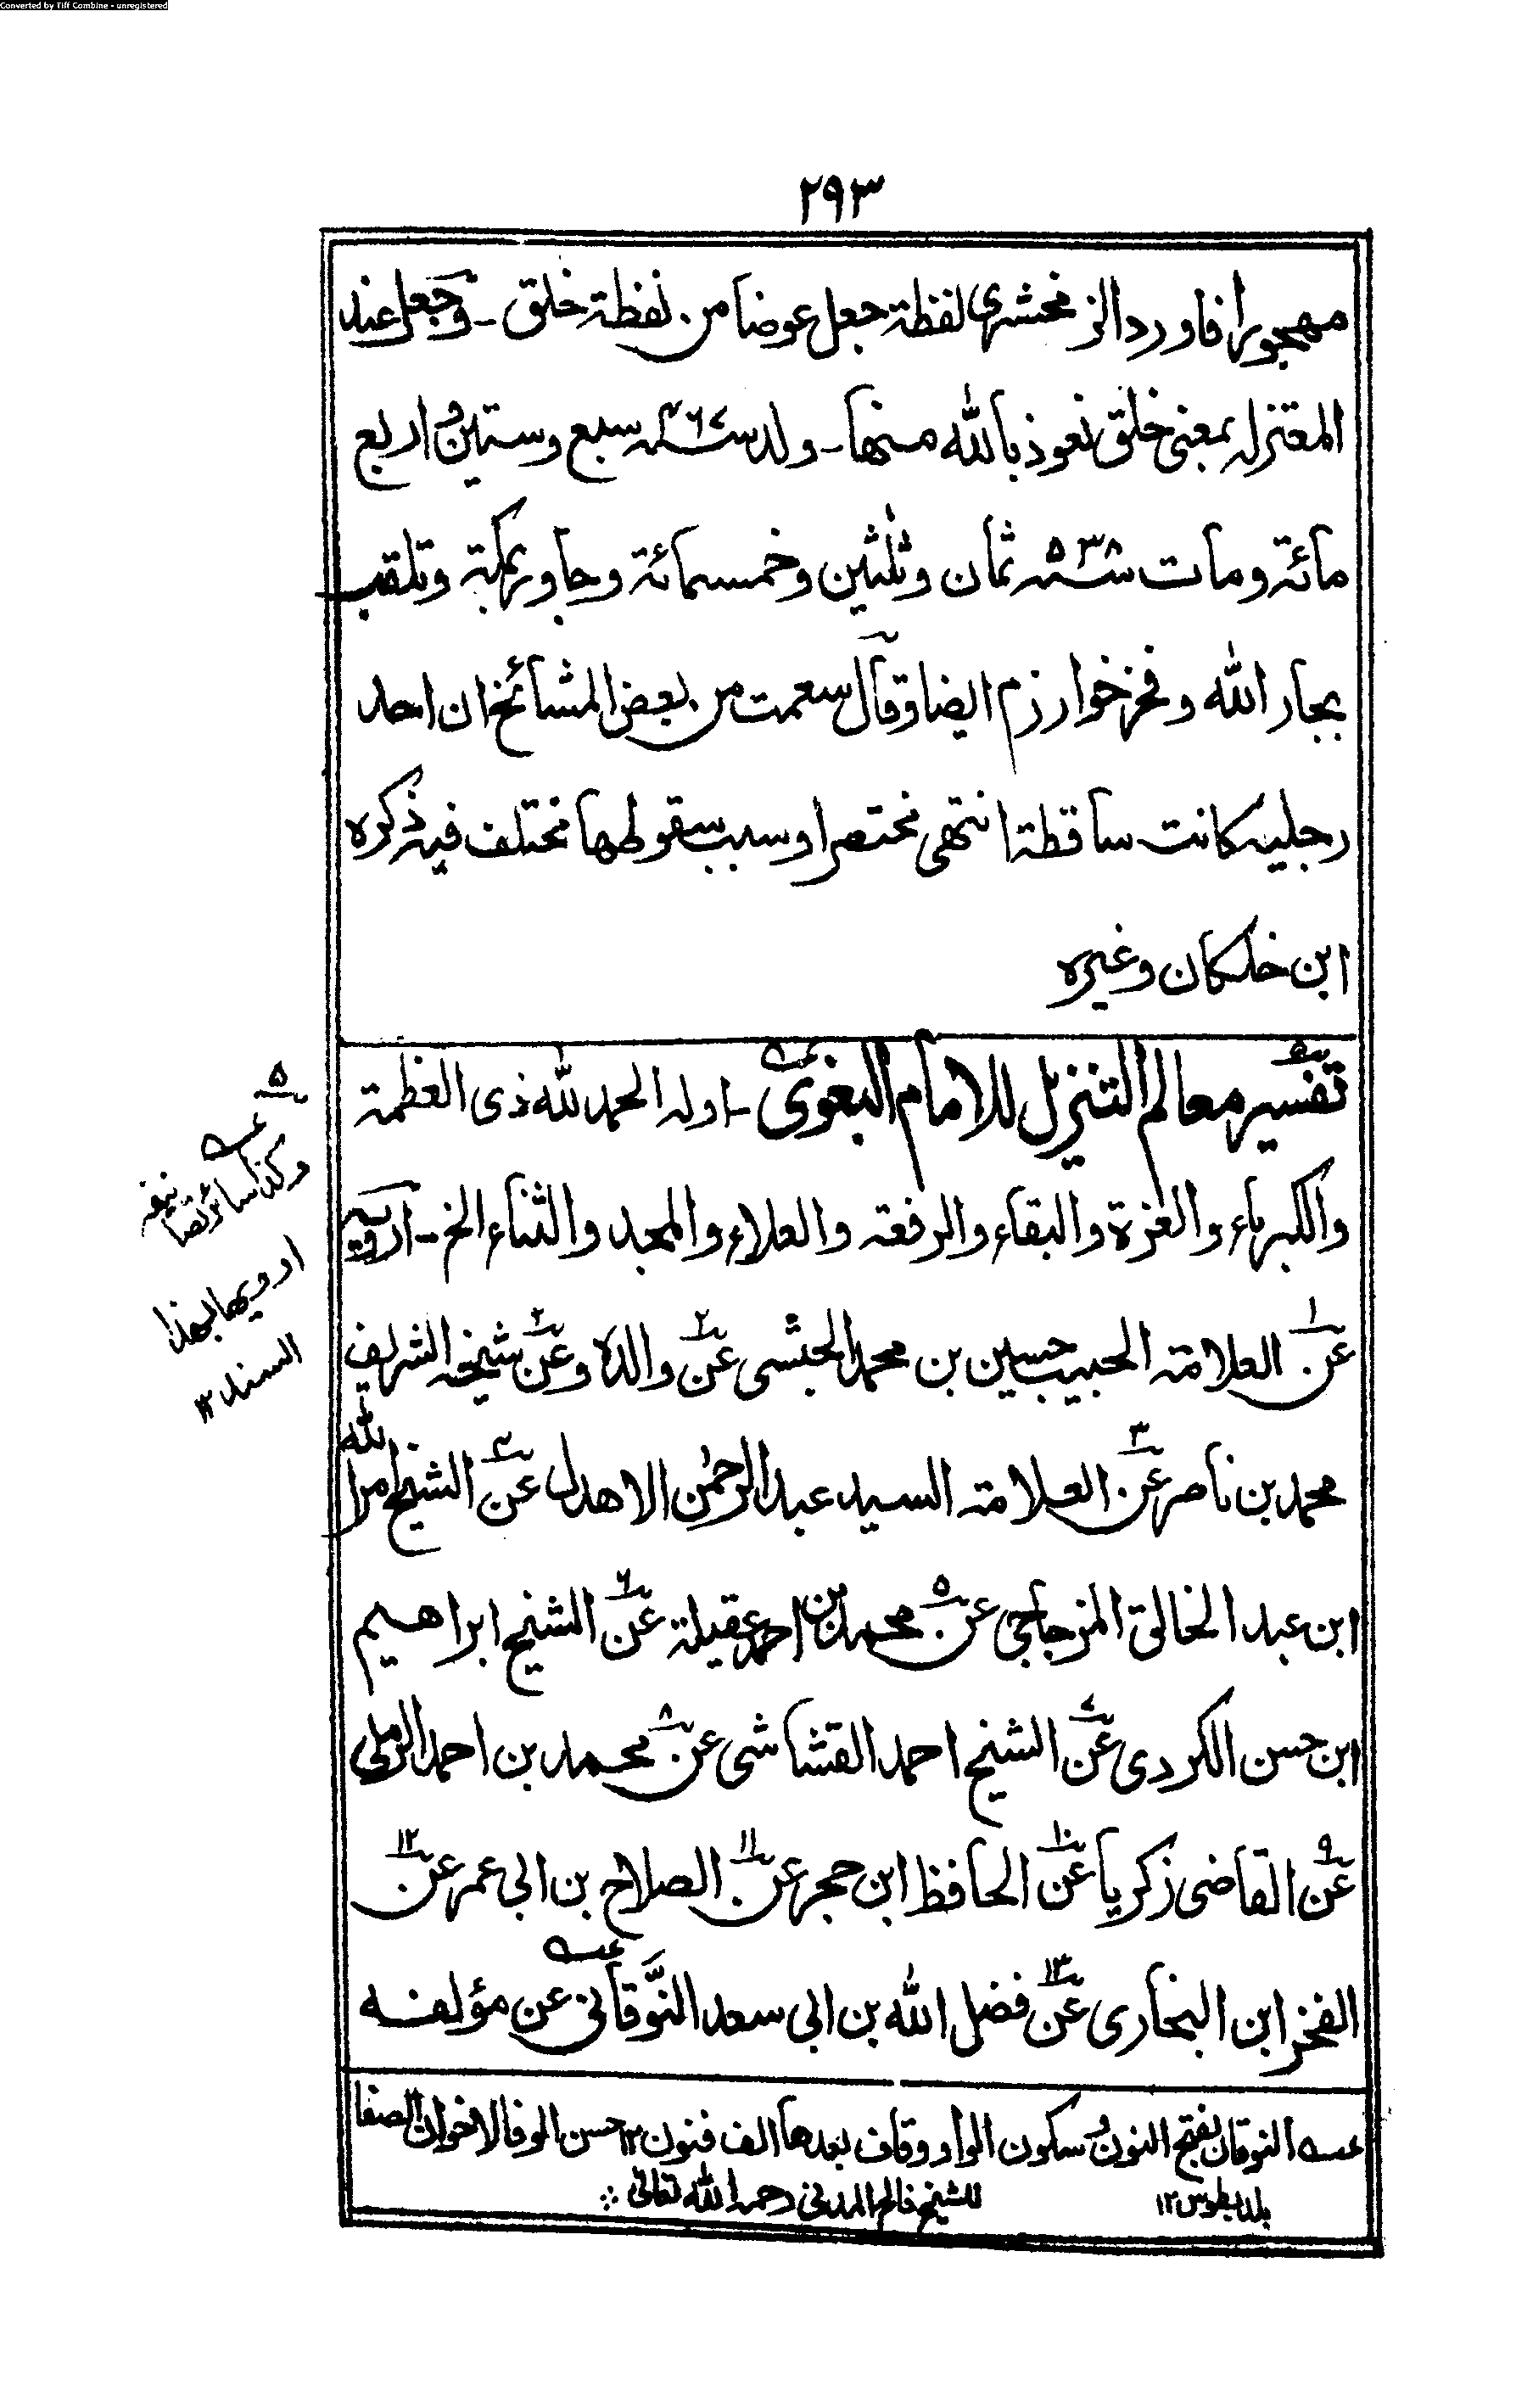 Converted by Tiff Combine - unregistered
٢٩٣
مهجورا فاورد الزمخشري لفظة جعل عوضا من لفظة خلق - وجعل عند
المعتزله بمعنى خلق نعوذ بالله منها - ولد سنه ٤٦٧ سبع وستين و اربع
مائة ومات سنه ٥٣٨ ثمان وثلثين وخمسمائة وجاور بمكة وتلقب
بجار الله وفخر خوارزم ايضا وقال سمعت من بعض المشائخ ان احد
رجليه كانت ساقطة انتهى مختصرا وسبب سقوطها مختلف فيه ذكره
ابن خلكان وغيره
تفسير معالم التنزيل للامام البغوي - اوله الحمد لله ذى العظمة
والكبرياء والعزة والبقاء والرفعه والعلاء والمجد والثناء الخ - ارويه
عن ١ العلامة الحبيب حسين بن محمد الحبشى عن ٢ والده وعن ٢ شيخه الشريف
محمد بن ناصر عن ٣ العلامه السيد عبد الرحمن الاهدل عن ٤ الشيخ امر الله
ابن عبد الخالق المزجاجي عن ٥ محمد بن احمد عقيلة عن ٦ الشيخ ابراهيم
ابن حسن الكردى عن ٧ الشيخ احمد القشاشى عن ٨ محمد بن احمد الرملى
عن ٩ القاضى زكريا عن ١٠ الحافظ ابن حجر عن ١١ الصلاح بن ابي عمر عن ١٢
الفخر ابن البخارى عن ١٣ فضل الله بن ابي سعد النَّوقاني عن مؤلفه
وكذا سائر تصانيفه
ارويها بهذا
السند ١٢
عه النوقان بفتح النون و سكون الواو وقاف بعدها الف فنون ١٢ حسن الوفا لاخوان الصفا
بلد بطوس ١٢ للشيخ فالح المدني رحمه الله تعالى